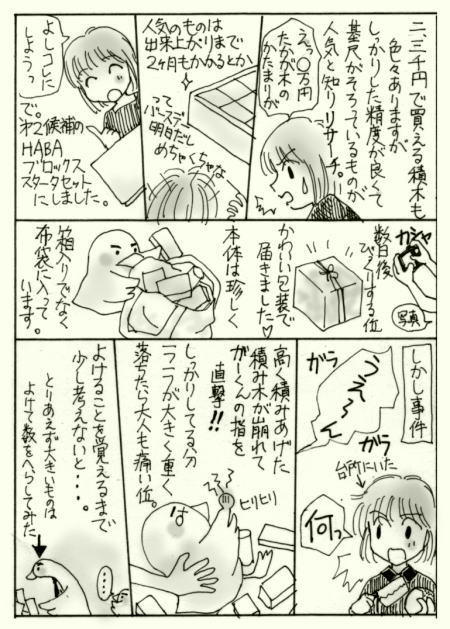 二、三千円で買える積木も
色々ありますが
しっかりした精度が良くて
基尺がそろっているものが
人気と知りリサーチ!!
えっ〇万円
たかが木の
かたまりが
人気のものは
出来上がりまで
2ヶ月もかかるとか
って
バースデー
明日だし
めちゃくちゃな
よしコレに
しようっ
で。
第2候補の
HABA
ブロックス
スターターセット
にしました。
ガシャ
写真
数日後
びっくりする位
かわいい包装で
届きました♡
本体は珍しく
箱入りでなく
布袋に入って
います。
しかし事件
うえーん
ガラ
ガラ
台所にいた
何っ
高く積みあげた
積み木が崩れて
がーくんの指を
直撃!!
ヒリヒリ
しっかりしてる分
一つ一つが大きく重く
落ちたら大人も痛い位。
は
よけることを覚えるまで
少し考えないと・・・。
とりあえず大きいものは
よけて数をへらしてみた
・・・